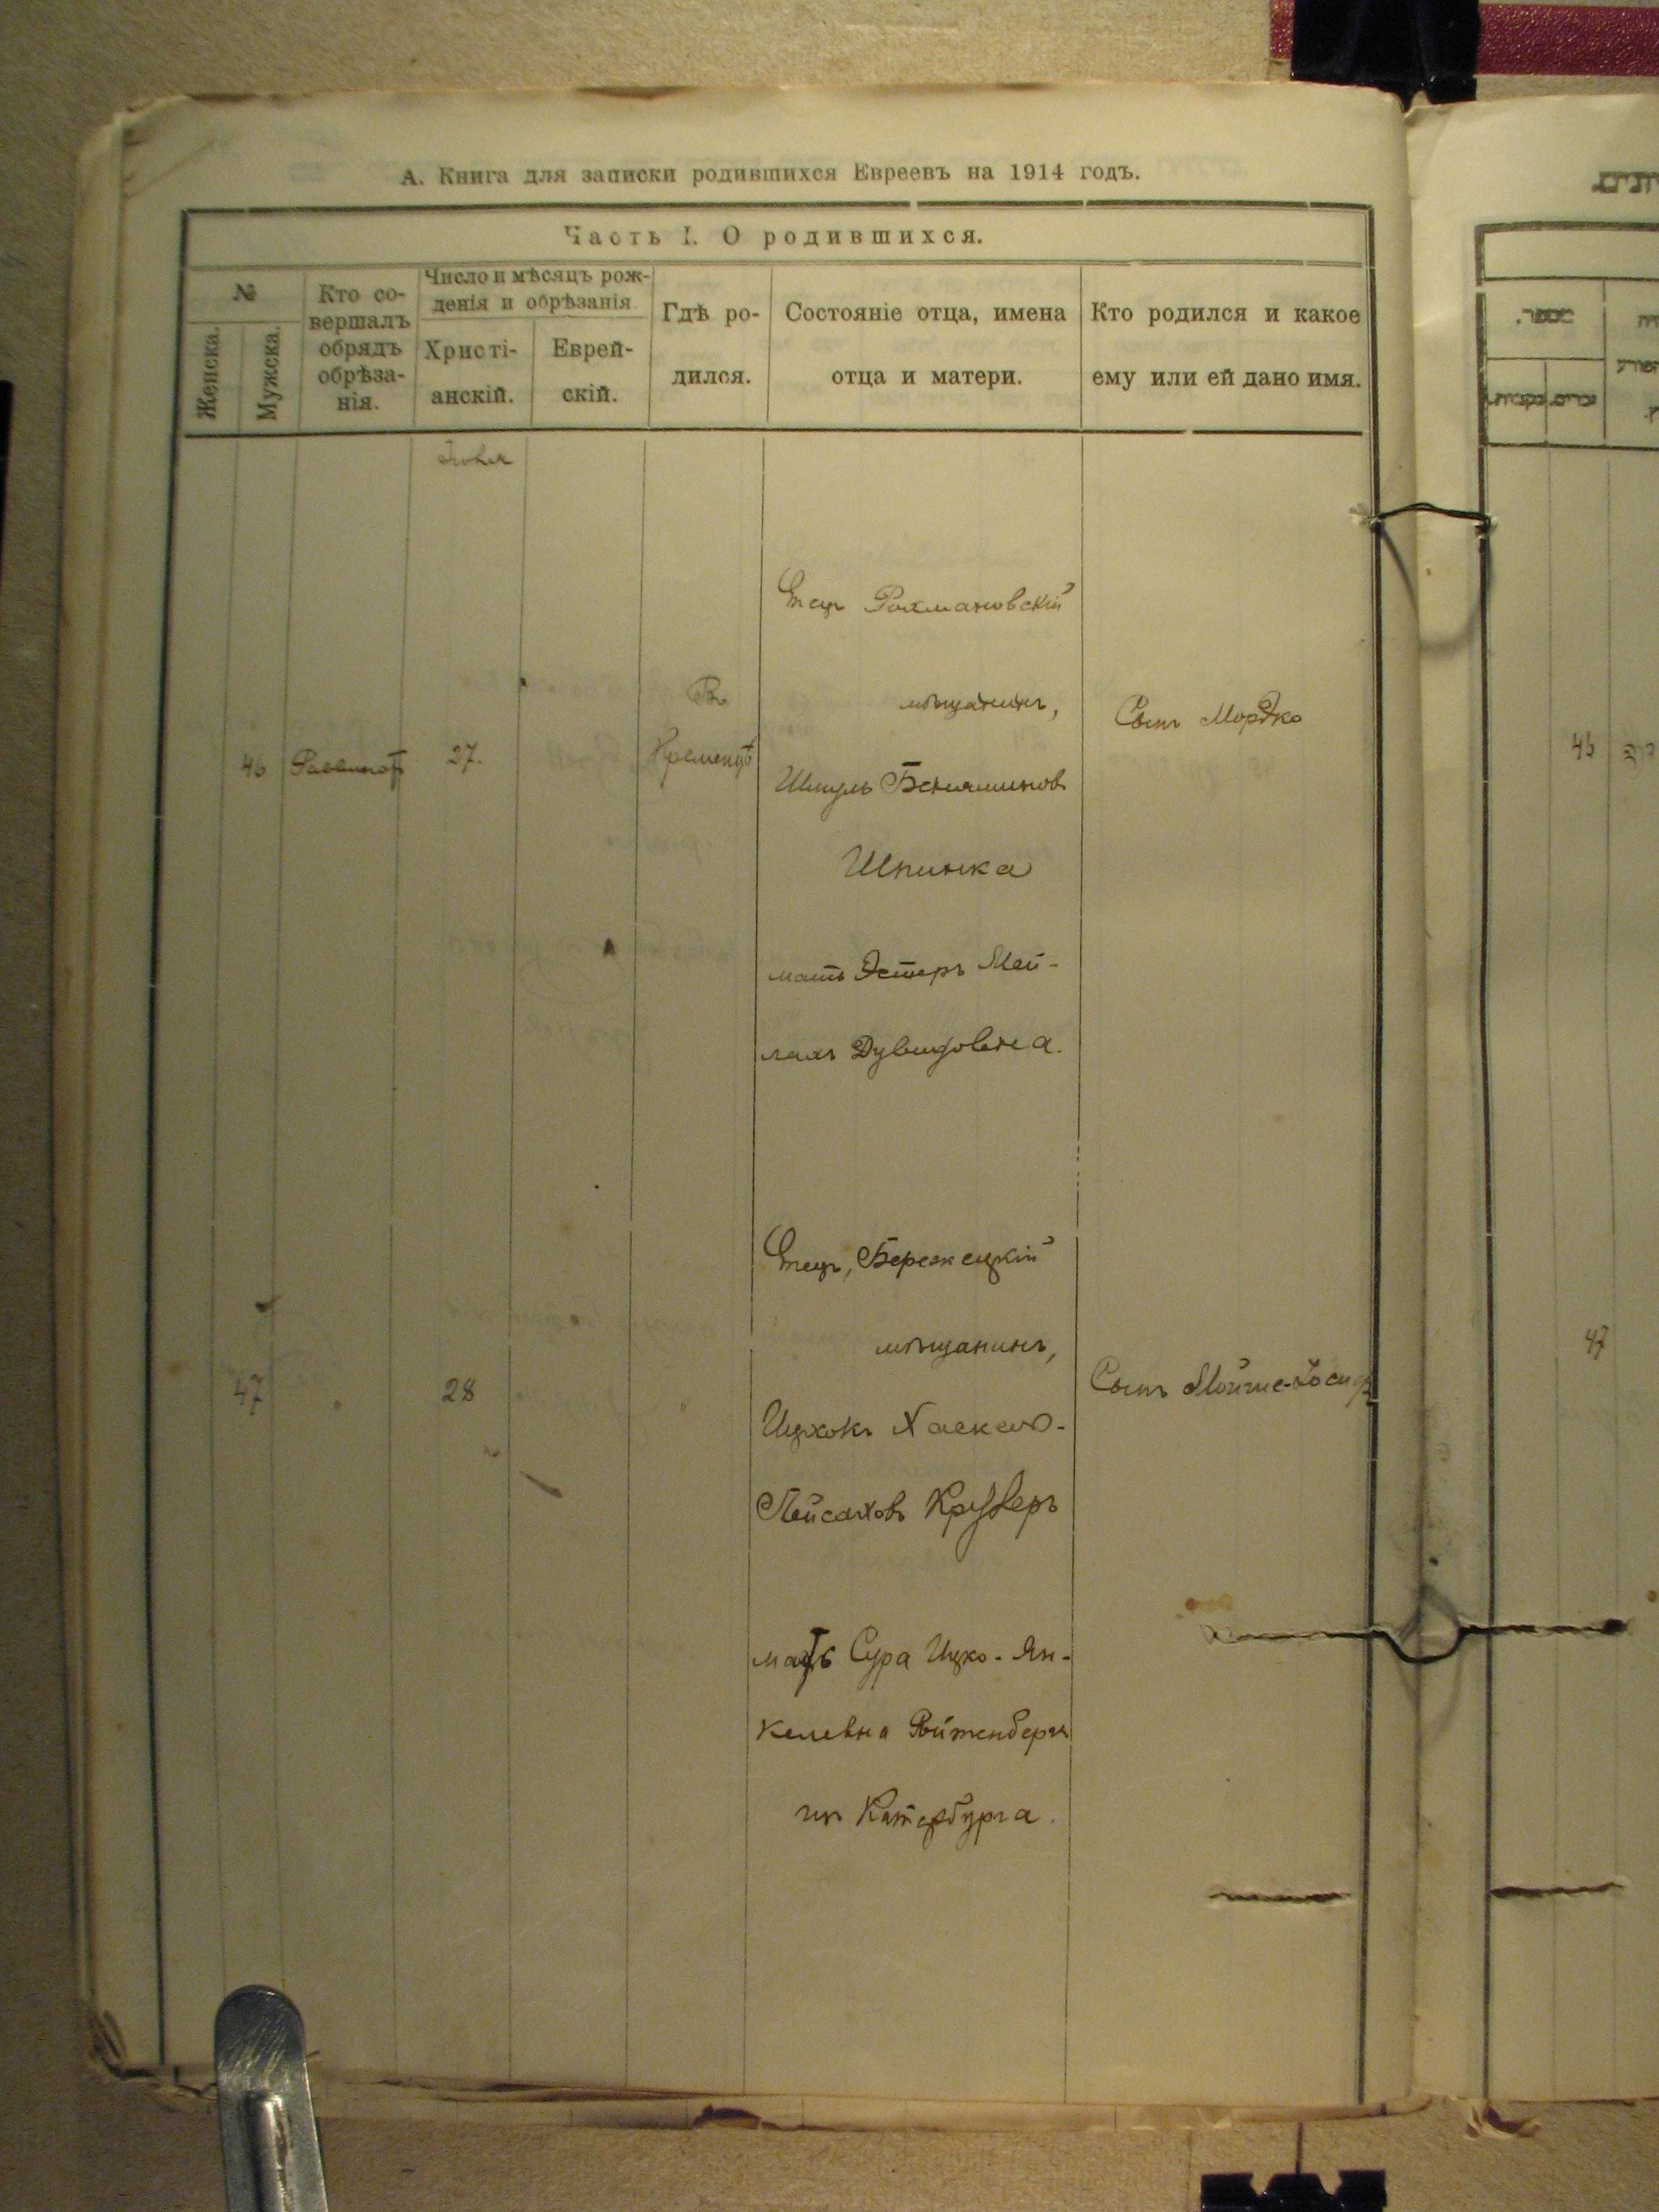 А. Книга для записки родившихся Евреевъ на 1914 годъ.
Часть I. О родившихся.
№
Женска.
Мужска.
Кто со-
вершалъ
обрядъ
обрѣза-
нія.
Число и мѣсяцъ рож-
денія и обрѣзанія.
Христі-
анскій.
Еврей-
скій.
Гдѣ ро-
дился.
Состояніе отца, имена
отца и матери.
Кто родился и какое
ему или ей дано имя.
46
27.
Въ
Кременцѣ
Отецъ Рохмановскій
мѣщанинъ,
Шмуль Беньяминовъ
Шпинка
мать Эстеръ Мей-
Дувидовна.
Сынъ Мордко
47
"
28
"
Отецъ, Бережецкій
мѣщанинъ,
Ицхокъ Хаскель-
Пейсаховъ
мать Сура Ицко-Ян-
келевна Ройтенбергъ
изъ Катербурга.
Сынъ Мойше-Іосиф
מספר.
זכרים.
נקבות.
46
47